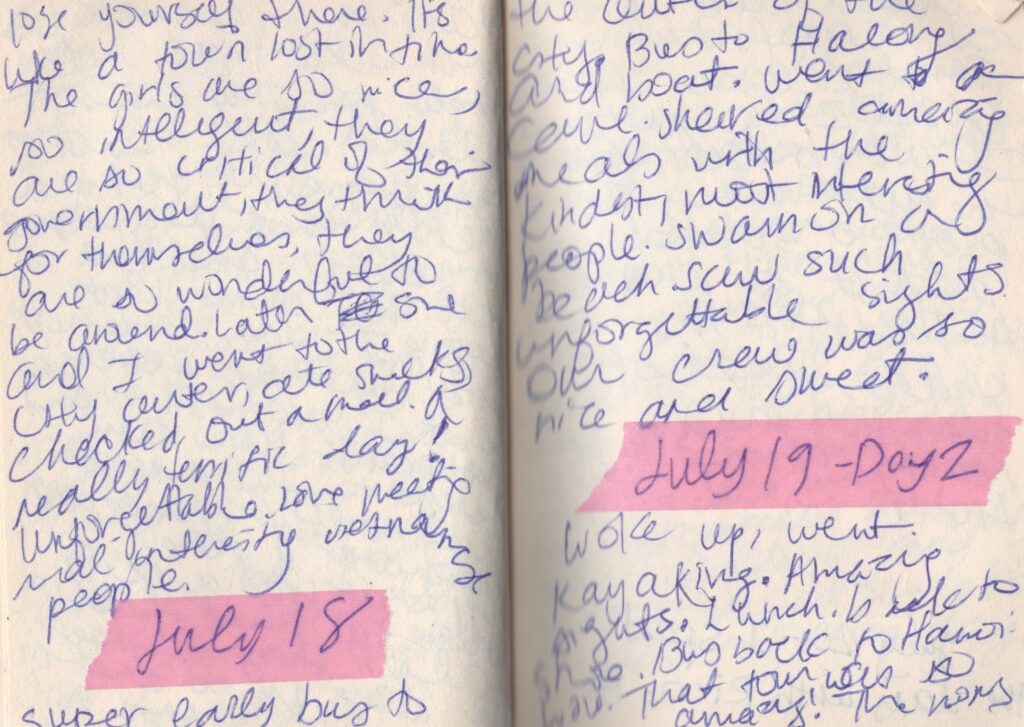 lose yourself there. It's
like a town lost in time
The girls are so nice,
so intelegent, they
are so critical of their
government, they think
for themselves, they
are so wonderful to
be around. Later som
and I went to the
city center, ate snacks
checked out a mall. A
really terrific day!
Unforgettable. Love meeting
real interesting vietnamese
people.
July 18
super early bus to
the center of the
city. Bus to Halong
and boat. went to a
cave. shared amazing
meals with the
kindest, most interesting
people. swam on a
beach saw such
unforgettable sights.
Our crew was so
nice and sweet.
July 19 - Day 2
Woke up, went
kayaking. Amazing
sights. Lunch. back to
Bus back to Hanoi.
That tour was so
amazing. The